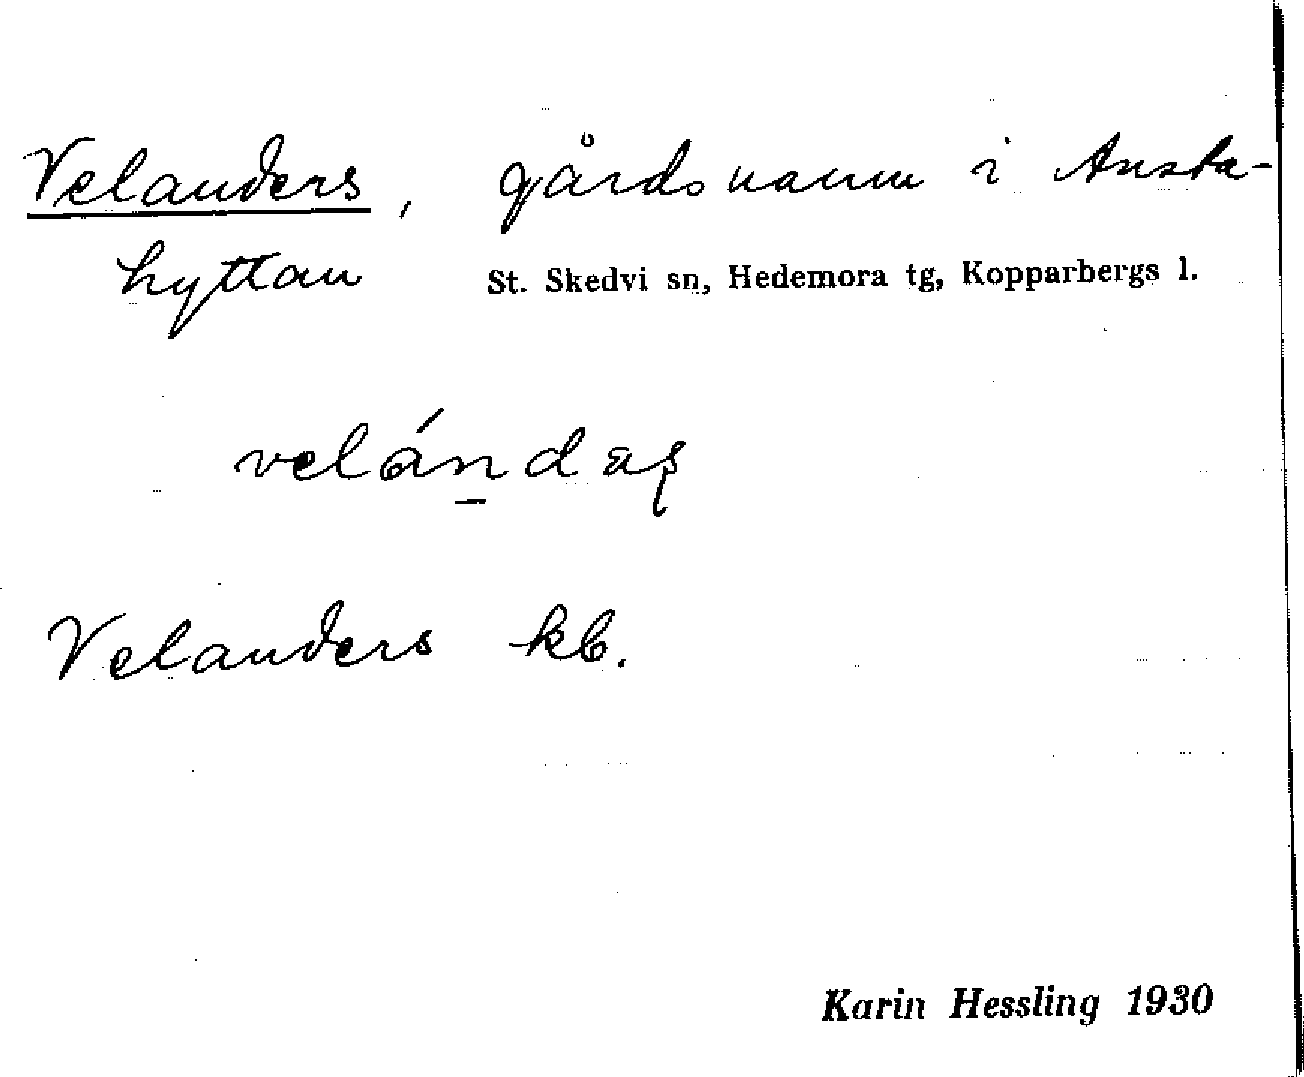 Velanders, gårdsnamn i Ansta-
hyttan St. Skedvi sn, Hedemora tg, Kopparbergs l.
Velanders kb.
Karin Hessling 1930